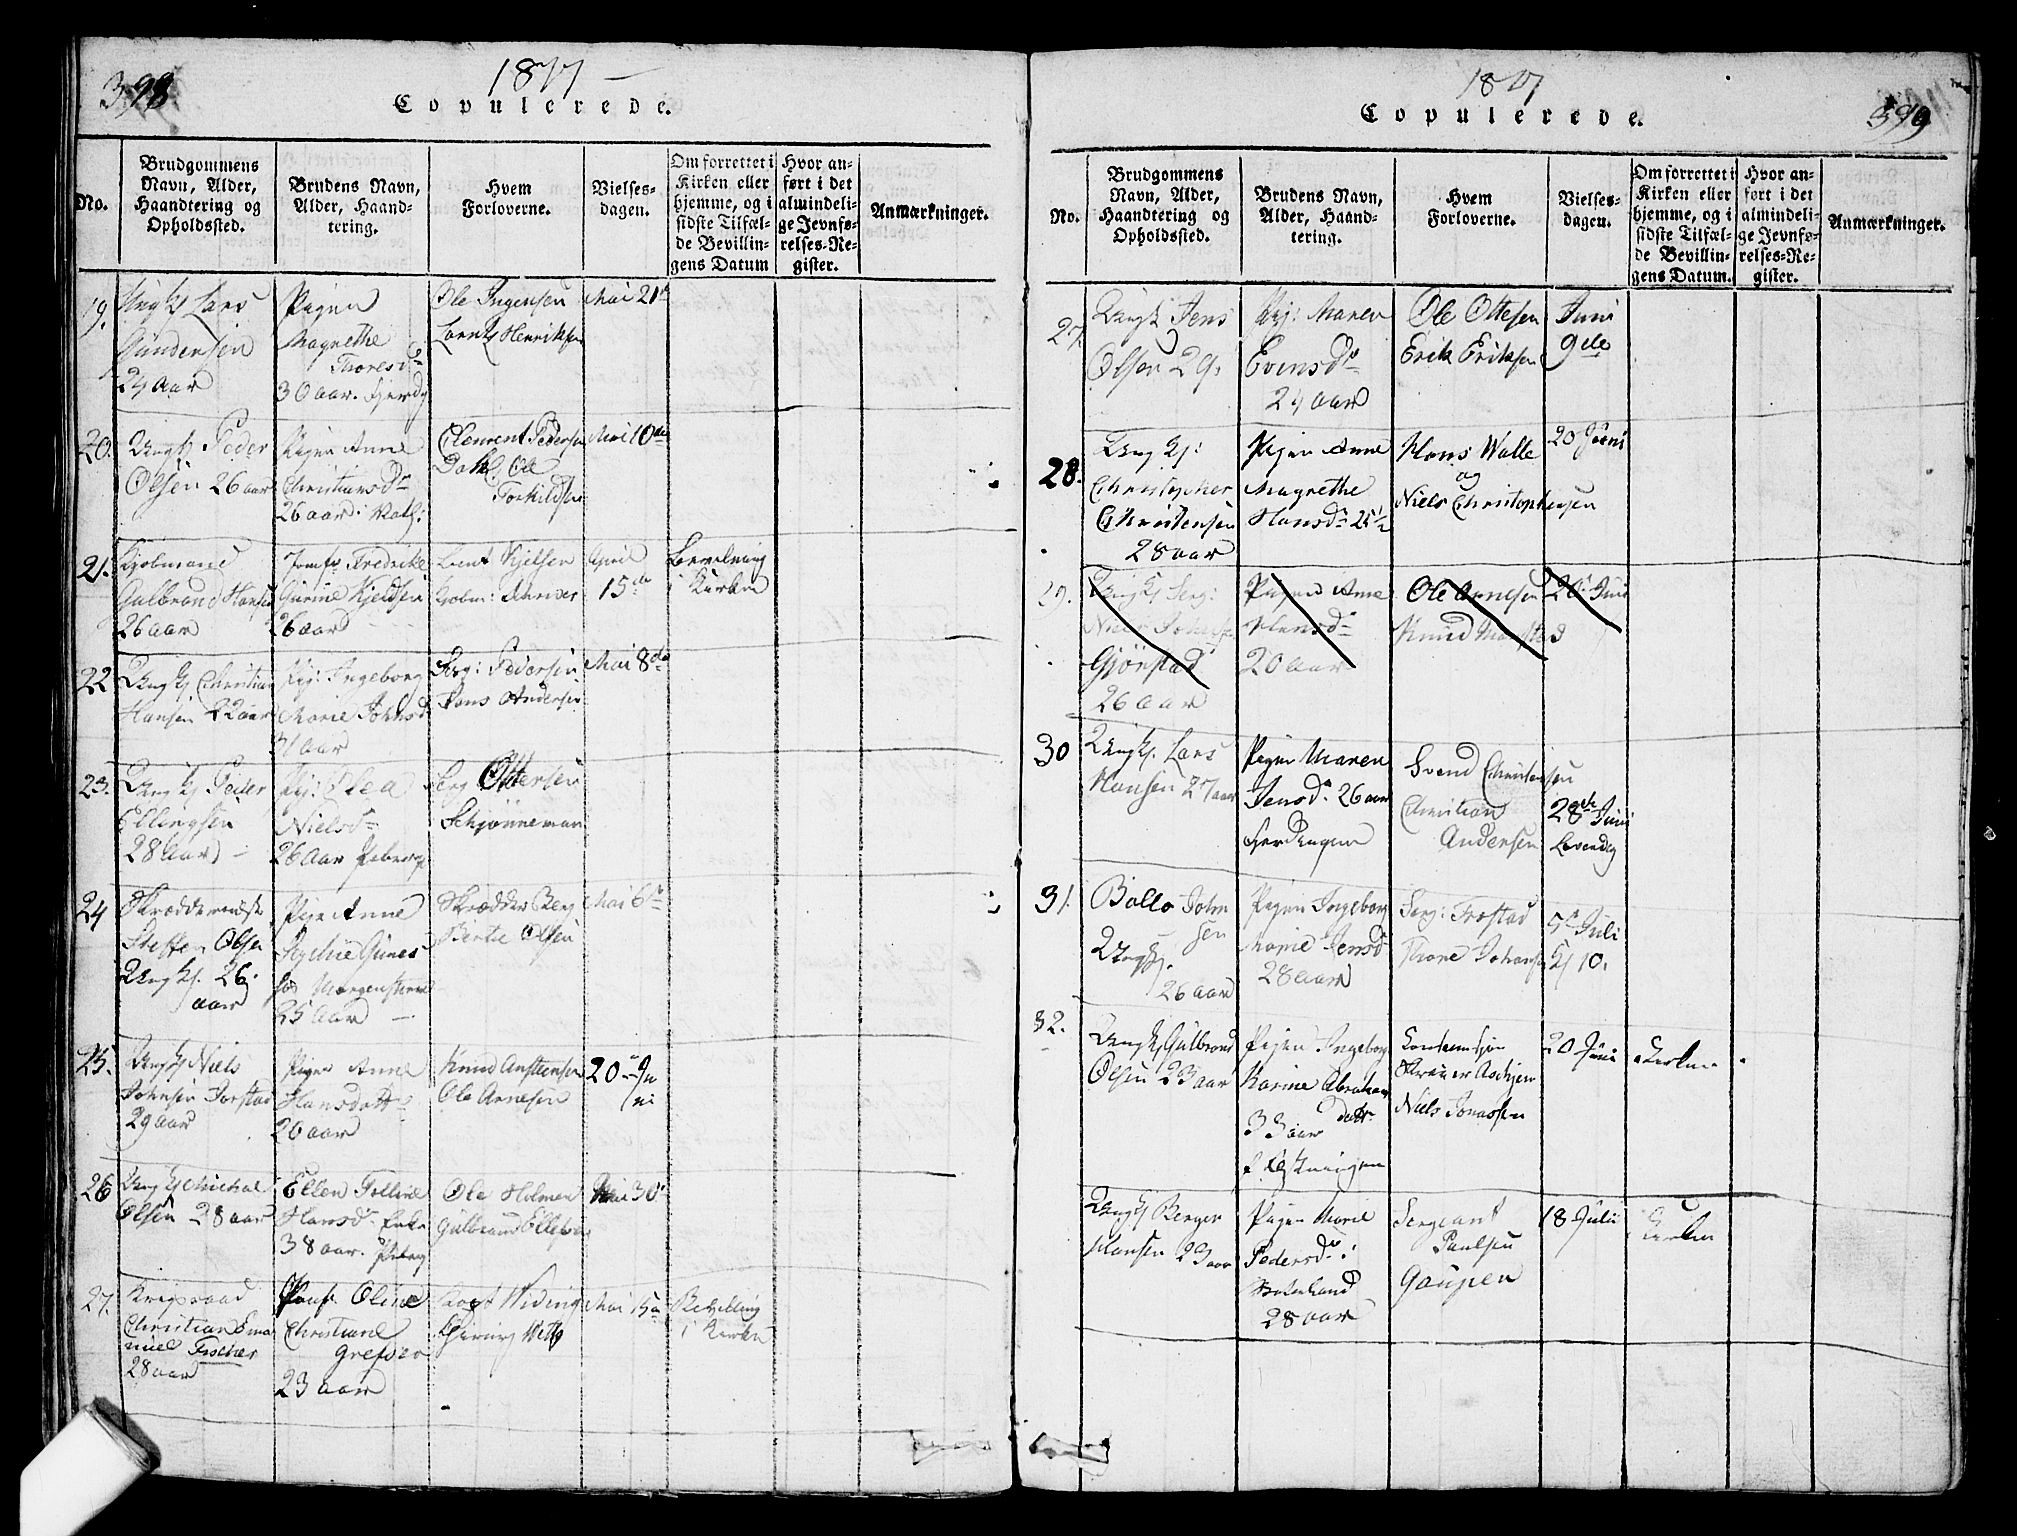 398
1817
Copulerede.
No.
Brudgommens Navn, Alder, Haandtering og Opholdssted.
Brudens Navn, Alder, Haandtering.
Hvem Forloverne.
Vielses-dagen.
Om forrettet i Kirken eller hjemme, og i sidste Tilfælde Bevillingens Datum
Hvor anført i det almindelige Jevnførelses-Register.
Anmærkninger.
19.
Ungk Lars
Gundersen
24 Aar
Pigen
Magrethe
Thoresd
30 aar.
Ole Ingensen
Larentz Henriksen
Mai 21
20.
Ungk Peder
Olsen 26 aar
Pigen Anne
Christiansd
26 aar
Clement Pedersen
Dahl, Ole
Torkildsen
Mai 10de
21.
Kjøbmand
Gulbrand Hansen
26 aar
Jomfr Fredrike
Gurine Kjeldsen
26 aar
Kjelsen
April
15de
Bevelning
i Kirken
22
Ungk Christian
Hansen 22 aar
Pig: Ingeborg
Marie Johnsd
31 aar
Serg: Pedersen
Hans Andersen
Mai 8de
23.
Ungk Peder
Ellingsen
28 Aar
Pig: Olea
Nielsd
26 Aar
Serg Ottersen
Schjønneman
24
Skræddermester
Steffen Olsen
Ungk. 26
aar
Pigen Anne
Morgenstierne
25 Aar
Skrædder Berg
Bertie Olsen
Mai 6
25.
Ungk Niels
Johnsen Forstad
29 aar
Pigen Anne
Hansdatt
20 aar
Knud Anstensen
Ole Arnesen
20 Ju
ni
26
Ungk Michal
Olsen 28 aar
Ellen Folline
Hansd Enke
38 aar.
Ole Holmen
Gulbrand Ellefsen
Mai 30
27.
Krigsraad
Christian Ema
nuel Fischer
28 aar
Jomf. Oline
Christiane
Grefver
23 aar
Widing
Mai 15
Bevelling
i Kirken
1817
Copulerede.
399
No.
Brudgommens Navn, Alder, Haandtering og Opholdssted.
Brudens Navn, Alder, Haandtering.
Hvem Forloverne.
Vielses-dagen.
Om forrettet i Kirken eller hjemme, og i sidste Tilfælde Bevillingens Datum.
Hvor anført i det almindelige Jevnførelses-Register.
Anmærkninger.
27.
Ungk Jens
Olsen 29.
Pig: Maren
Evensd
24 aar
Ole Ottesen
Erik Eriksen
Juni
9de
28.
Ungkj:
Christopher
Christensen
28 aar
Pigen Anne
Magrethe
Hansd 25½
Hans Walle
og
Niels Christophersen
20 Juni
29.
Ungk Serg:
Niels Johnsen
Gjørstad
26 aar
Pigen Anne
Hansd
20 aar
Ole Arnesen
Knud
20 Juni
30
Ungk. Lars
Hansen 27 aar
Pigen Maren
Jensd 26 aar
Svend Christensen
Christian
Andersen
28de Juni
31.
Bollo John
sen
Ungk.
26 aar
Pigen Ingeborg
Marie Jensd
28 aar
Serg: Frostad
Thore Johansen
5 Juli
Kl 10.
32.
Ungk Gulbrand
Olsen 23 aar
Pigen Ingeborg
Karine Abraham
datr
33 aar
Niels Jonassen
20 Juni
Kirken
Ungk Berger
Hansen 23 aar
Pigen Marie
Pedersd
28 aar
Sergeant
Paulsen
Gaupen
18 Juli
Kirken